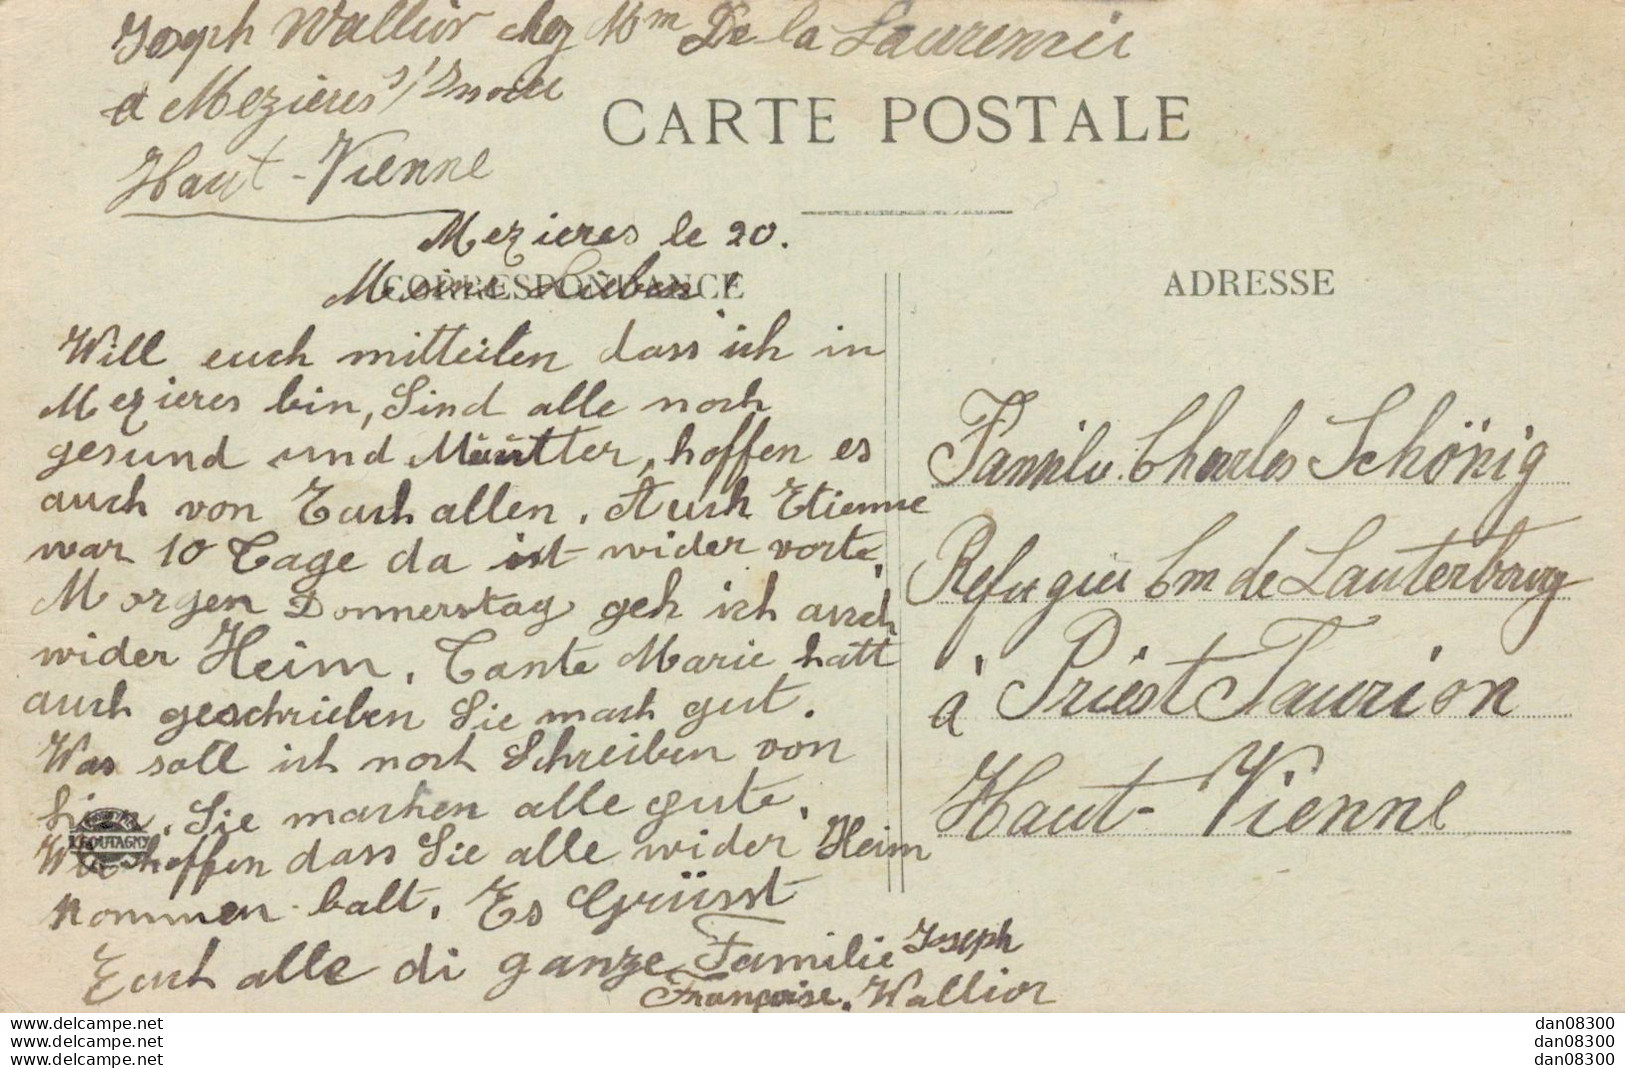 Joseph Wallior chez Mm De la Lauremie
a Mezieres s/Issoire
Haut-Vienne
CARTE POSTALE
Mezieres le 20.
CORRESPONDANCE
Meine Lieben!
Will euch mitteilen dass ich in
Mezieres bin, Sind alle noch
gesund und Muutter, hoffen es
auch von Euch allen. Auch Etienne
war 10 Tage da ist wider vorte.
Morgen Donnerstag geh ich auch
wider Heim. Tante Marie hatt
auch geschrieben Sie mach gut.
Was soll ich noch Schreiben von
hier. Sie machen alle gute.
Wir hoffen dass Sie alle wider Heim
Kommen balt. Es Grüsst
Euch alle di ganze Familie Joseph
Françoise. Wallior
ADRESSE
Famile. Charles Schönig
Refugier Cm de Lauterbourg
à Priest Taurion
Haut-Vienne
www.delcampe.net
www.delcampe.net
www.delcampe.net
dan08300
dan08300
dan08300